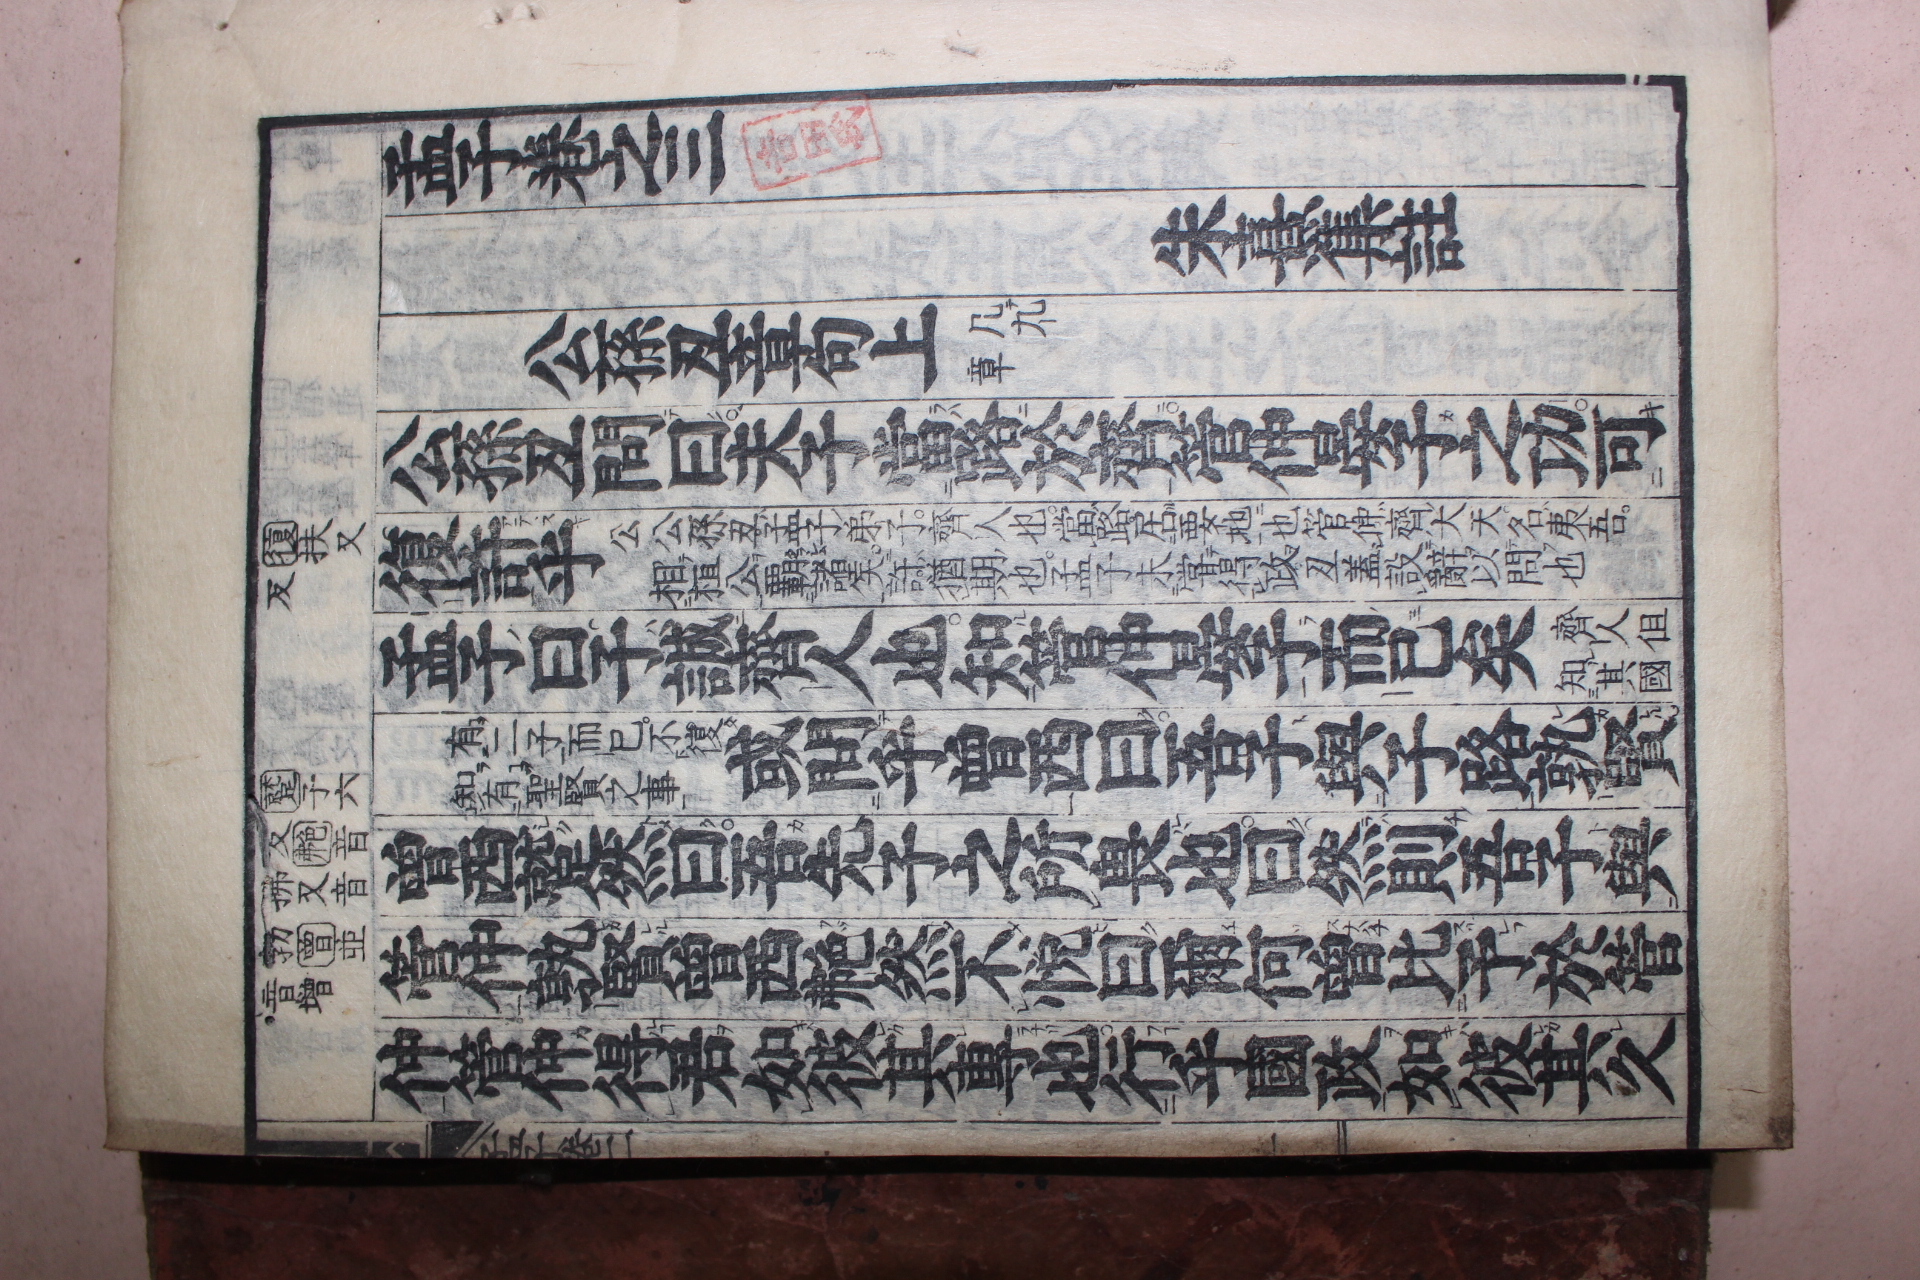 孟子卷之三
朱熹集註
公孫丑章句上 凡九章
公孫丑問曰夫子當路於齊管仲晏子之功可
復許乎
公孫丑孟子弟子。齊人也。當路居要地也管仲齊大夫。名夷吾。
相桓公霸諸矦。許猶期也。孟子未嘗得政丑蓋設辭以問也
孟子曰子誠齊人也知管仲晏子而已矣
齊人但
知其國
有二子而已。不復
知有聖賢之事
或問乎曾西曰吾子與子路孰賢
曾西蹵然曰吾先子之所畏也曰然則吾子與
管仲孰賢曾西艴然不悅曰爾何曾比予於管
仲管仲得君如彼其專也行乎國政如彼其久
復扶又
反
蹵子六
反艴音
拂又音
勃曾並
音增。
孟子卷三